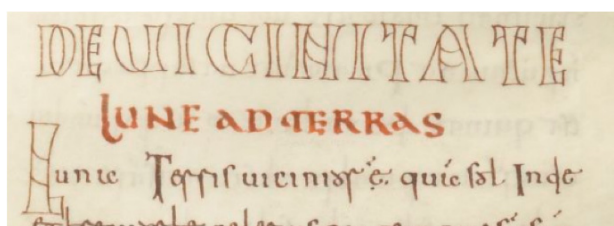 DE UICINITATE
LUNE AD TERRAS
Luna Terris uicinior ÷ quā sol. Inde